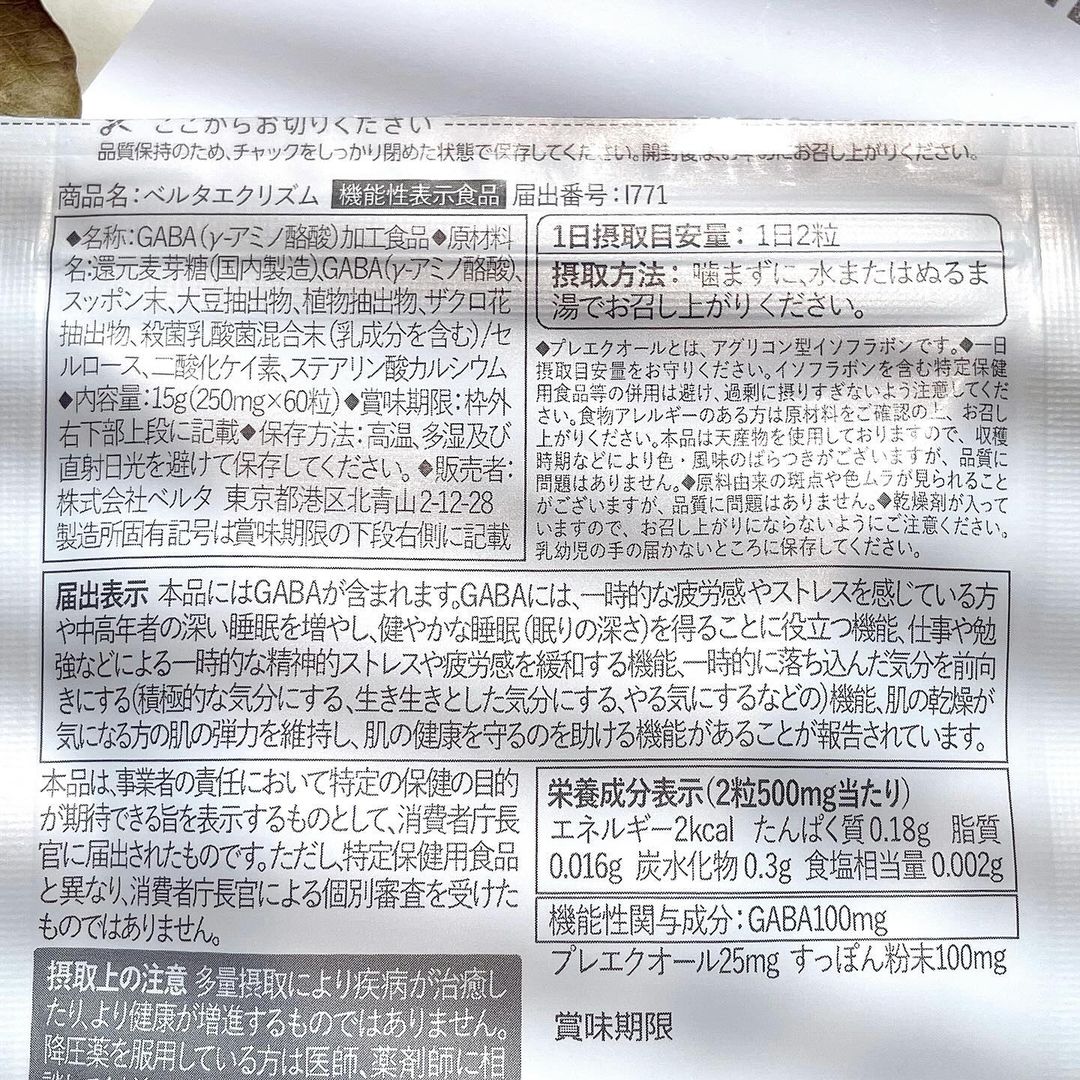 ここからお切りください
品質保持のため、チャックをしっかり閉めた状態で保存してください。開封後はお早めにお召し上がりください。
商品名：ベルタエクリズム 機能性表示食品 届出番号：I771
◆名称：GABA（γ-アミノ酪酸）加工食品◆原材料
名：還元麦芽糖（国内製造）、GABA（γ-アミノ酪酸）、
スッポン末、大豆抽出物、植物抽出物、ザクロ花
抽出物、殺菌乳酸菌混合末（乳成分を含む）/セ
ルロース、二酸化ケイ素、ステアリン酸カルシウム
◆内容量：15g（250mg×60粒）◆賞味期限：枠外
右下部上段に記載◆保存方法：高温、多湿及び
直射日光を避けて保存してください。◆販売者：
株式会社ベルタ 東京都港区北青山2-12-28
製造所固有記号は賞味期限の下段右側に記載
1日摂取目安量：1日2粒
摂取方法：噛まずに、水またはぬるま
湯でお召し上がりください。
◆プレエクオールとは、アグリコン型イソフラボンです。◆一日
摂取目安量をお守りください。イソフラボンを含む特定保健
用食品等の併用は避け、過剰に摂りすぎないよう注意してくだ
さい。食物アレルギーのある方は原材料をご確認の上、お召し
上がりください。本品は天産物を使用しておりますので、収穫
時期などにより色・風味のばらつきがございますが、品質に
問題はありません。◆原料由来の斑点や色ムラが見られること
がございますが、品質に問題はありません。◆乾燥剤が入って
いますので、お召し上がりにならないようにご注意ください。
乳幼児の手の届かないところに保存してください。
届出表示 本品にはGABAが含まれます。GABAには、一時的な疲労感やストレスを感じている方
や中高年者の深い睡眠を増やし、健やかな睡眠（眠りの深さ）を得ることに役立つ機能、仕事や勉
強などによる一時的な精神的ストレスや疲労感を緩和する機能、一時的に落ち込んだ気分を前向
きにする（積極的な気分にする、生き生きとした気分にする、やる気にするなどの）機能、肌の乾燥が
気になる方の肌の弾力を維持し、肌の健康を守るのを助ける機能があることが報告されています。
本品は、事業者の責任において特定の保健の目的
が期待できる旨を表示するものとして、消費者庁長
官に届出されたものです。ただし、特定保健用食品
と異なり、消費者庁長官による個別審査を受けた
ものではありません。
摂取上の注意 多量摂取により疾病が治癒し
たり、より健康が増進するものではありません。
降圧薬を服用している方は医師、薬剤師に相
栄養成分表示（2粒500mg当たり）
エネルギー2kcal たんぱく質0.18g 脂質
0.016g 炭水化物0.3g 食塩相当量0.002g
機能性関与成分：GABA100mg
プレエクオール25mg すっぽん粉末100mg
賞味期限